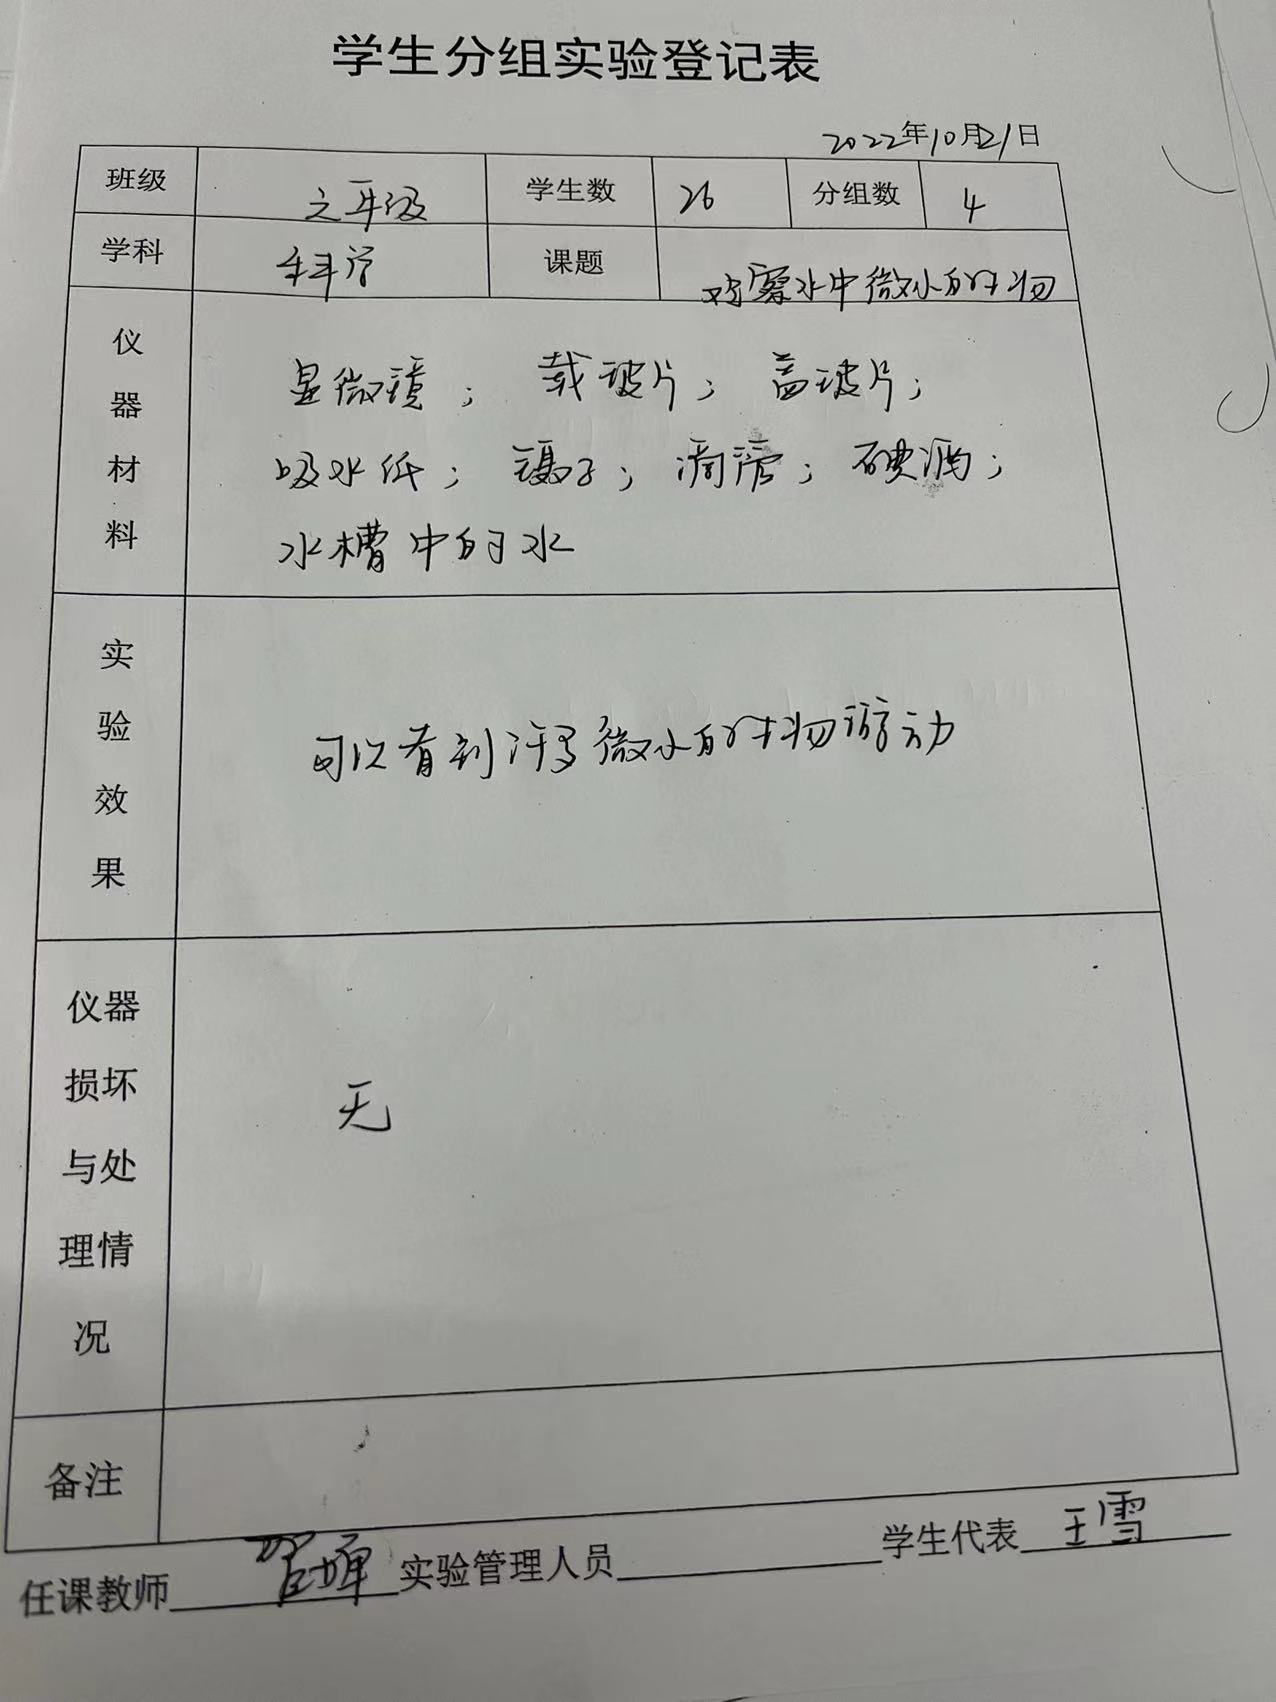 学生分组实验登记表
2022年10月21日
班级 六年级 学生数 26 分组数 4
学科 科学 课题 观察水中微小的生物
仪器材料
显微镜； 载玻片； 盖玻片；
吸水纸； 镊子； 滴管； 碘酒；
水槽中的水
实验效果
可以看到许多微小的生物游动
仪器损坏与处理情况
无
备注
任课教师 实验管理人员 学生代表 王雪